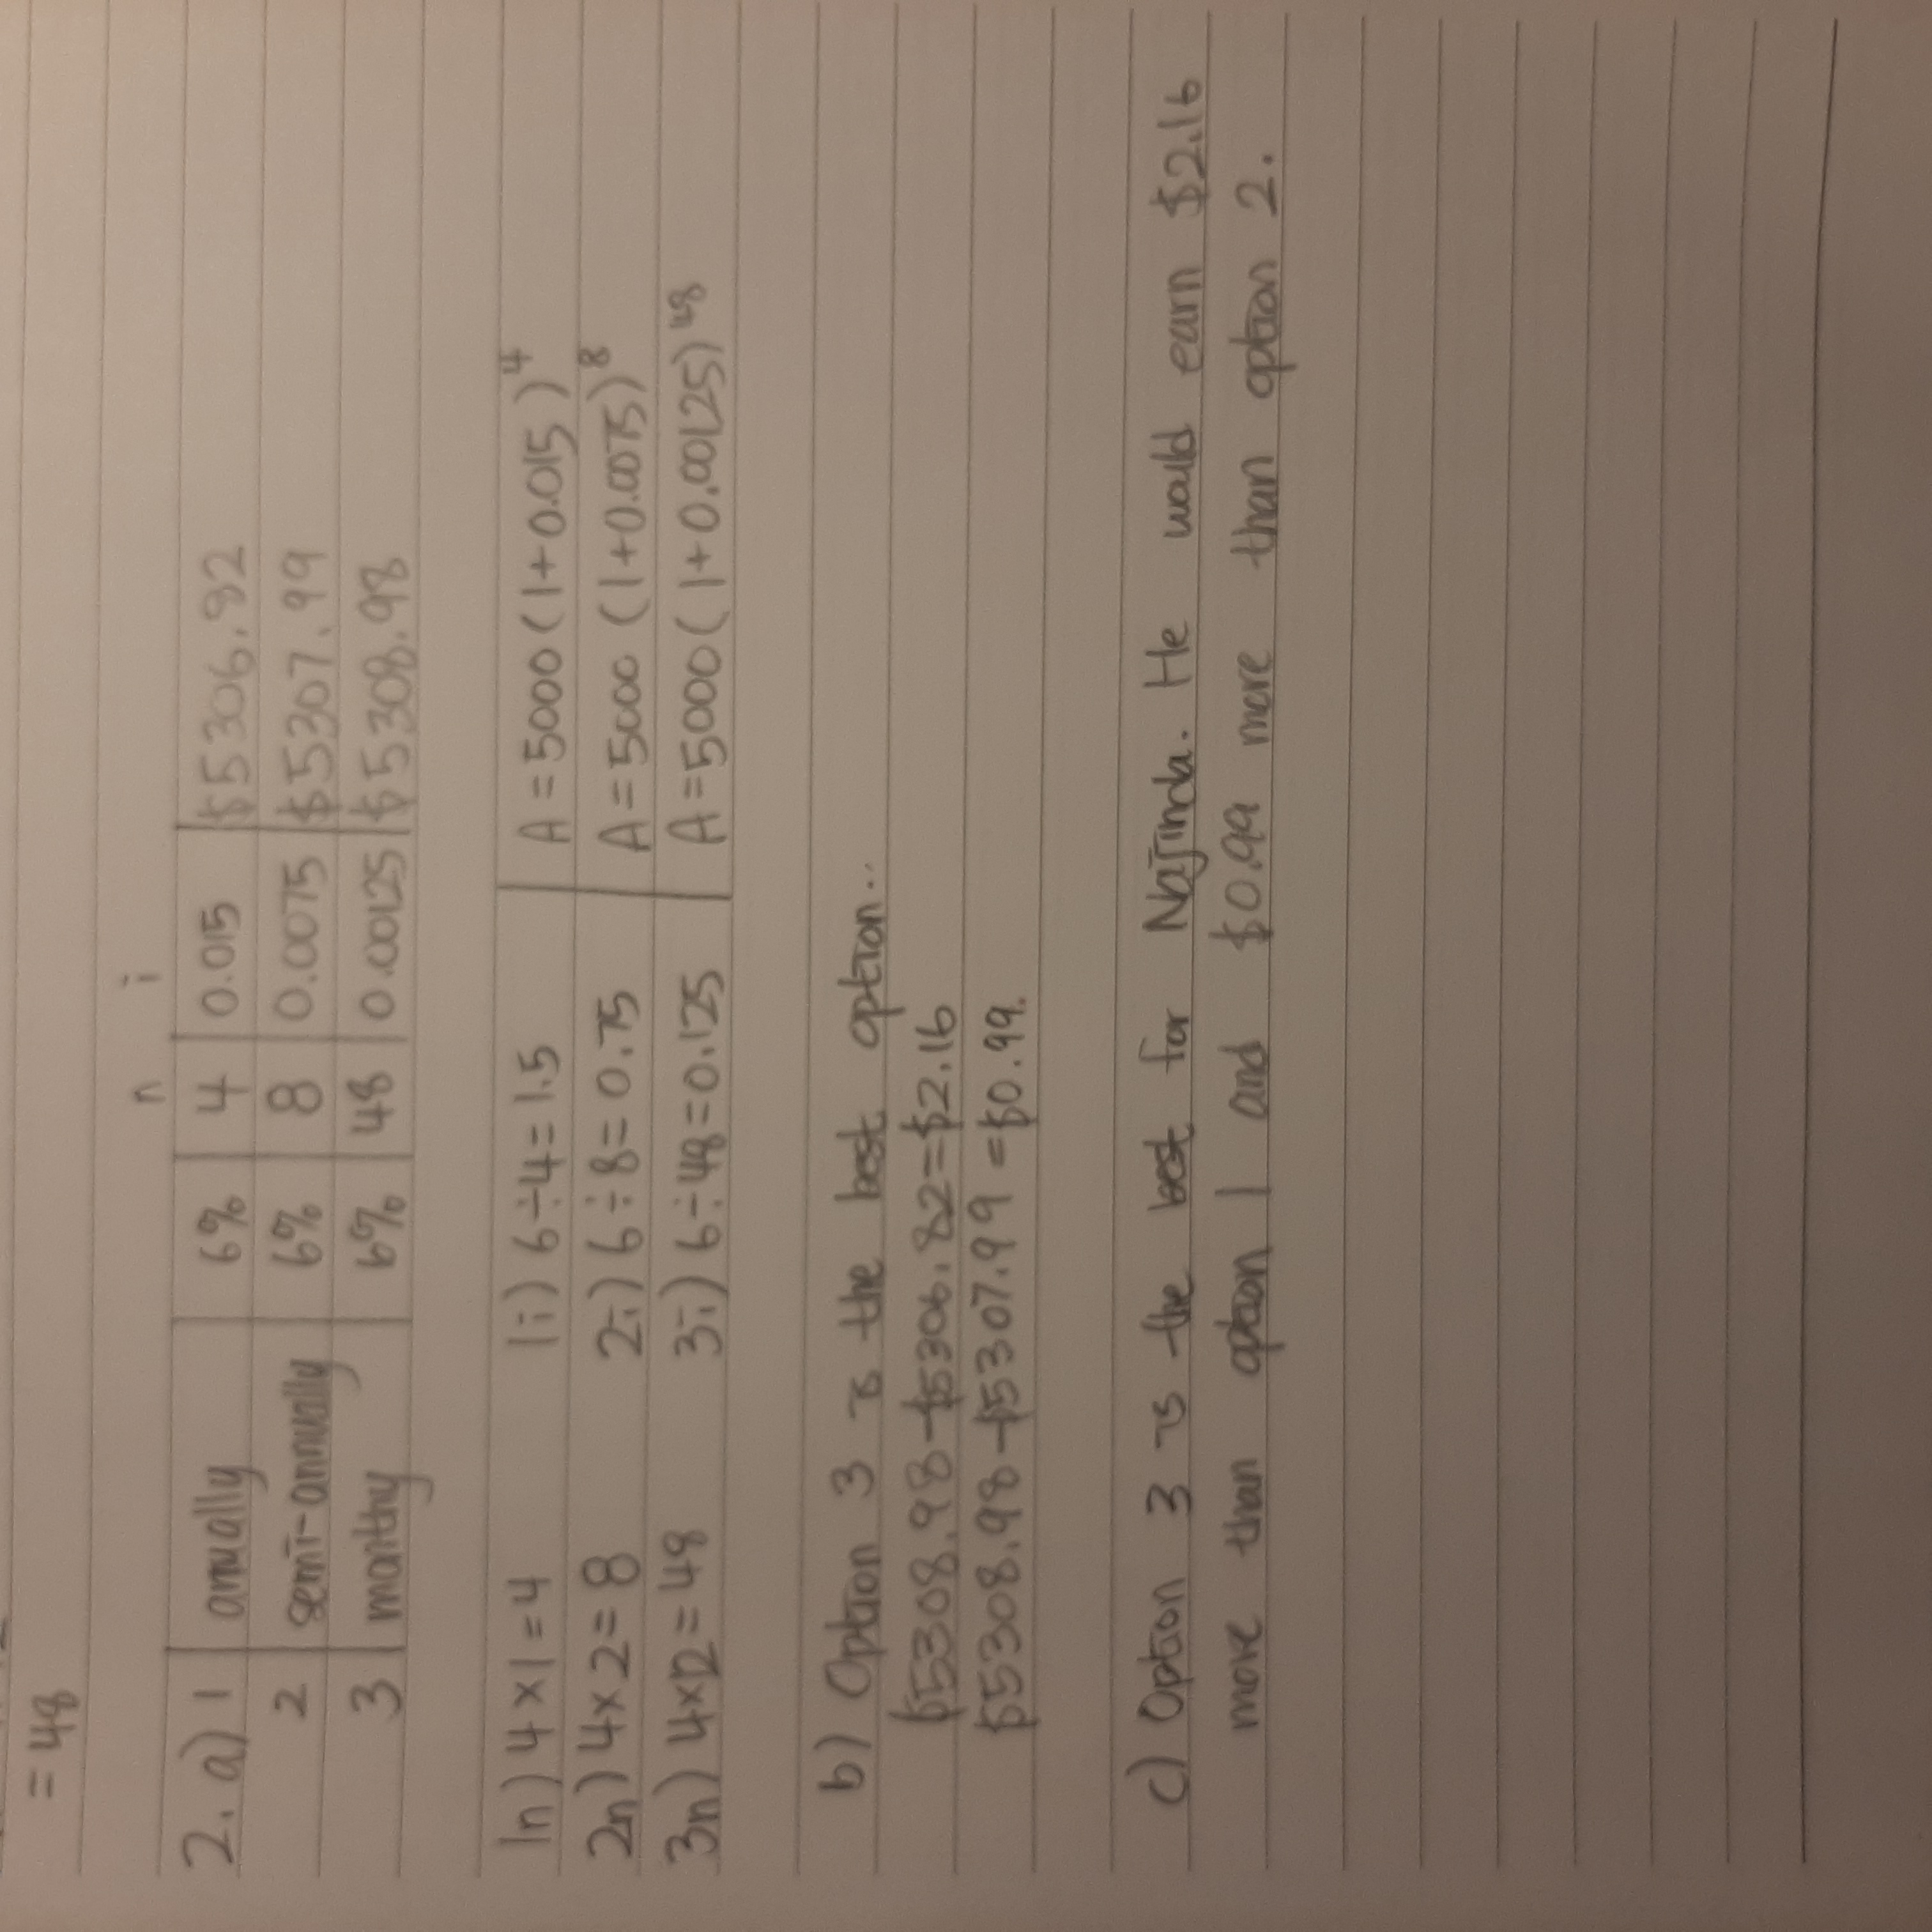 = 48
n i
2. a) 1 anually 6% 4 0.015 $5306.82
2 semi-annually 6% 8 0.0075 $5307.99
3 monthy 6% 48 0.00125 $5308.98
1n) 4×1=4 1i) 6÷4=1.5 A=5000(1+0.015)⁴
2n) 4×2=8 2i) 6÷8=0.75 A=5000(1+0.0075)⁸
3n) 4×12=48 3i) 6÷48=0.125 A=5000(1+0.00125)⁴⁸
b) Option 3 is the best option..
$5308.98-$5306.82=$2.16
$5308.98-$5307.99=$0.99.
c) Option 3 is the best for Najinda. He would earn $2.16
more than option 1 and $0.99 more than option 2.